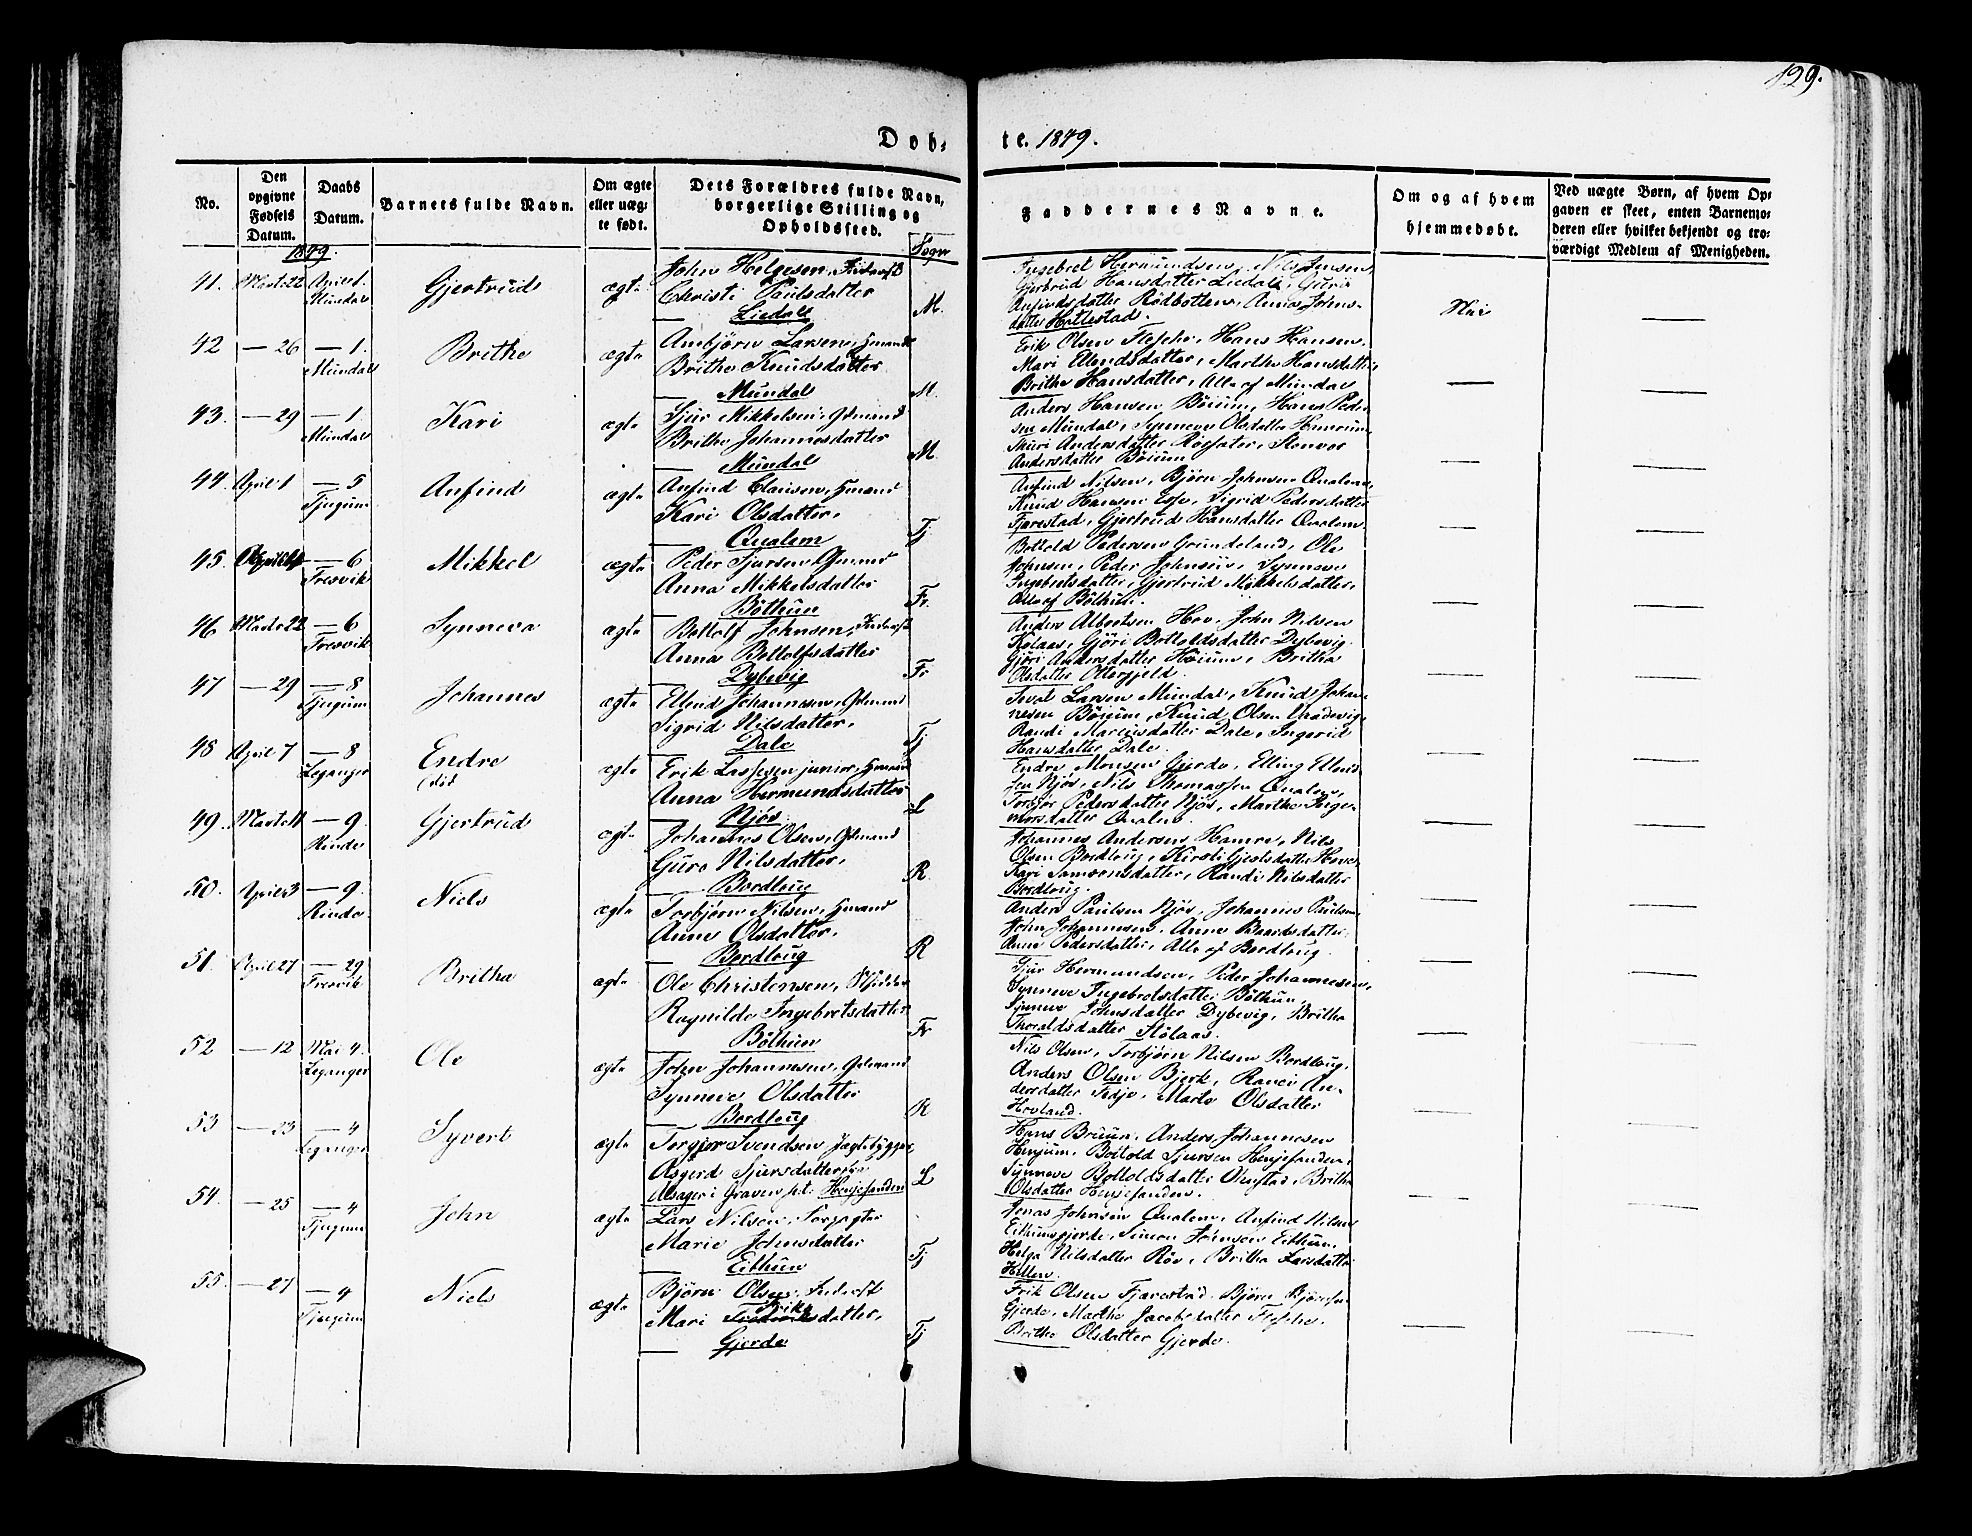 129.
Døb-te. 1849.
No.
Den opgivne Fødsels Datum.
Daabs Datum.
Barnets fulde Navn.
Om ægte eller uægte født.
Dets Forældres fulde Navn, borgerlige Stilling og Opholdssted.
Sogn
Faddernes Navne.
Om og af hvem hjemmedøbt.
Ved uægte Børn, af hvem Opgaven er skeet, enten Barnemoderen eller hvilket bekjendt og troværdigt Medlem af Menigheden.
1849.
41. Marts 22 April 1. Mundal Gjertrud ægte
John Helgesen,
Christi Paulsdatter
Liedal M.
Ingebret Hermundsen, Nils Jensen,
Gjertrud Hansdatter Liedal,
Anfindsdatter Rødbotten, Anna Johns-
datter Hattestad.
Nei —
42 — 26 — 1. Mundal Brithe ægte
Ambjørn Larsen, Hmand
Brithe Knudsdatter
Mundal M.
Erik Olsen Fesche, Hans Hansen,
Mari Ellendsdatter, Marthe Hansdatter,
Brithe Hansdatter, Alle af Mundal
— —
43. — 29 — 1 Mundal Kari ægte
Sjur Mikkelsen, Gdmand
Brithe Johannesdatter
Mundal M.
Anders Hansen Böium, Hans Peder-
sen Mundal, Synneve Olsdatter
Thuri Andersdatter
Andersdatter Böium
— —
44. April 1 — 5 Tjugum Anfind ægte
Anfind Clausen, Hmand
Kari Olsdatter,
Qualem Tj
Anfind Nilsen, Björn Johnsen Qualem,
Knud Hansen Esse, Sigrid Pedersdatter
Fjærestad, Gjertrud Hansdatter Qualem.
— —
45. April — 6 Fresvik Mikkel ægte
Peder Sjursen Gdmand
Anna Mikkelsdatter
Böthun Fr.
Botold Pedersen Grundeland, Ole
Johnsen, Peder Johnsen, Synneve
Ingebretsdatter, Gjertrud Mikkelsdatter,
Alle af Böthun.
— —
46 Marts 22 — 6 Fresvik Synneva ægte
Bottolf Johnsen,
Anna Bottolfsdatter
Dybevig Fr
Anders Albertsen Hov, John Nilsen
Kolaas, Gjöri Bottoldsdatter Dybevig.
Gjöri Andersdatter Höium, Britha
Olsdatter Otterfjeld.
— —
47 — 29 — 8 Tjugum Johannes ægte
Ellend Johannesen, Gdmand
Sigrid Nilsdatter,
Dale Tj
Larsen Mundal, Knud Johan-
nesen Böium, Knud Olsen
Randi Mariusdatter Dale, Ingerid
Hansdatter Dale.
— —
48 April 7 — 8 Leganger Endre
(död ægte
Erik Lassesen junior, Hmand
Anna Hermundsdatter
Njös L
Endre Monsen Gjerde, Elling Ellend
sen Njös, Nils Thomassen Qualem,
Torbjør Pedersdatter Njös, Marthe Inge-
morsdatter Qualem.
— —
49. Marts 14 — 9. Rinde Gjertrud ægte
Johannes Olsen, Gdmand
Guro Nilsdatter,
Bordloug R.
Johannes Andersen Hamre, Nils
Olsen Bordloug, Kirsti Gjertsdatter
Kari Samsonsdatter, Randi Nilsdatter
Bordloug.
— —
50. April 3 — 9. Rinde Niels ægte
Torbjørn Nilsen, Hmand
Anne Olsdatter,
Bordloug R
Anders Paulsen Njös, Johannes Paulsen
John Johannesen, Anne Baardsdatter,
Anne Pedersdatter, Alle af Bordloug.
— —
51. April 27 — 29 Fresvik Britha ægte
Ole Christensen,
Ragnilde Ingebretsdatter
Böthun Fr
Sjur Hermundsen, Peder Johannesen,
Synneve Ingebretsdatter Böthun,
Synneve Johnsdatter Dybevig, Britha
Thoraldsdatter Stölaas.
— —
52 — 12 Mai 4. Leganger Ole ægte
John Johannesen, Gdmand
Synneve Olsdatter
Bordloug R
Nils Olsen, Torbjørn Nilsen Bordloug,
Anders Olsen Bjerk, Randi An-
dersdatter Fedje, Marte Olsdatter
Hovland.
— —
53 — 23 — 4 Leganger Syvert ægte
Torgjer Svendsen, Jagtebygger,
Asgerd Sjursdatter
Graven p.t. Henjesanden L
Hans Bruun, Anders Johannesen
Henjum, Botold Sjursen Henjesanden,
Synneve Bottoldsdatter Olmstad, Britha
Olsdatter Henjesanden.
— —
54. — 25 — 4 Tjugum John ægte
Lars Nilsen, Forpagter
Marie Johnsdatter
Eithun Tj
Jonas Johnsen Qualem, Anfind Nilsen
Eithunsgjerde, Simon Johnsen Eithun,
Helga Nilsdatter Röv, Britha Larsdatter
Hellen.
— —
55. — 27 — 4 Tjugum Niels ægte
Björn Olsen, Inderst
Mari Eriksdatter,
Gjerde Tj
Erik Olsen Fjærestad, Björn Björnsen
Gjerde, Marthe Jacobsdatter Fesche,
Brithe Olsdatter Gjerde.
— —